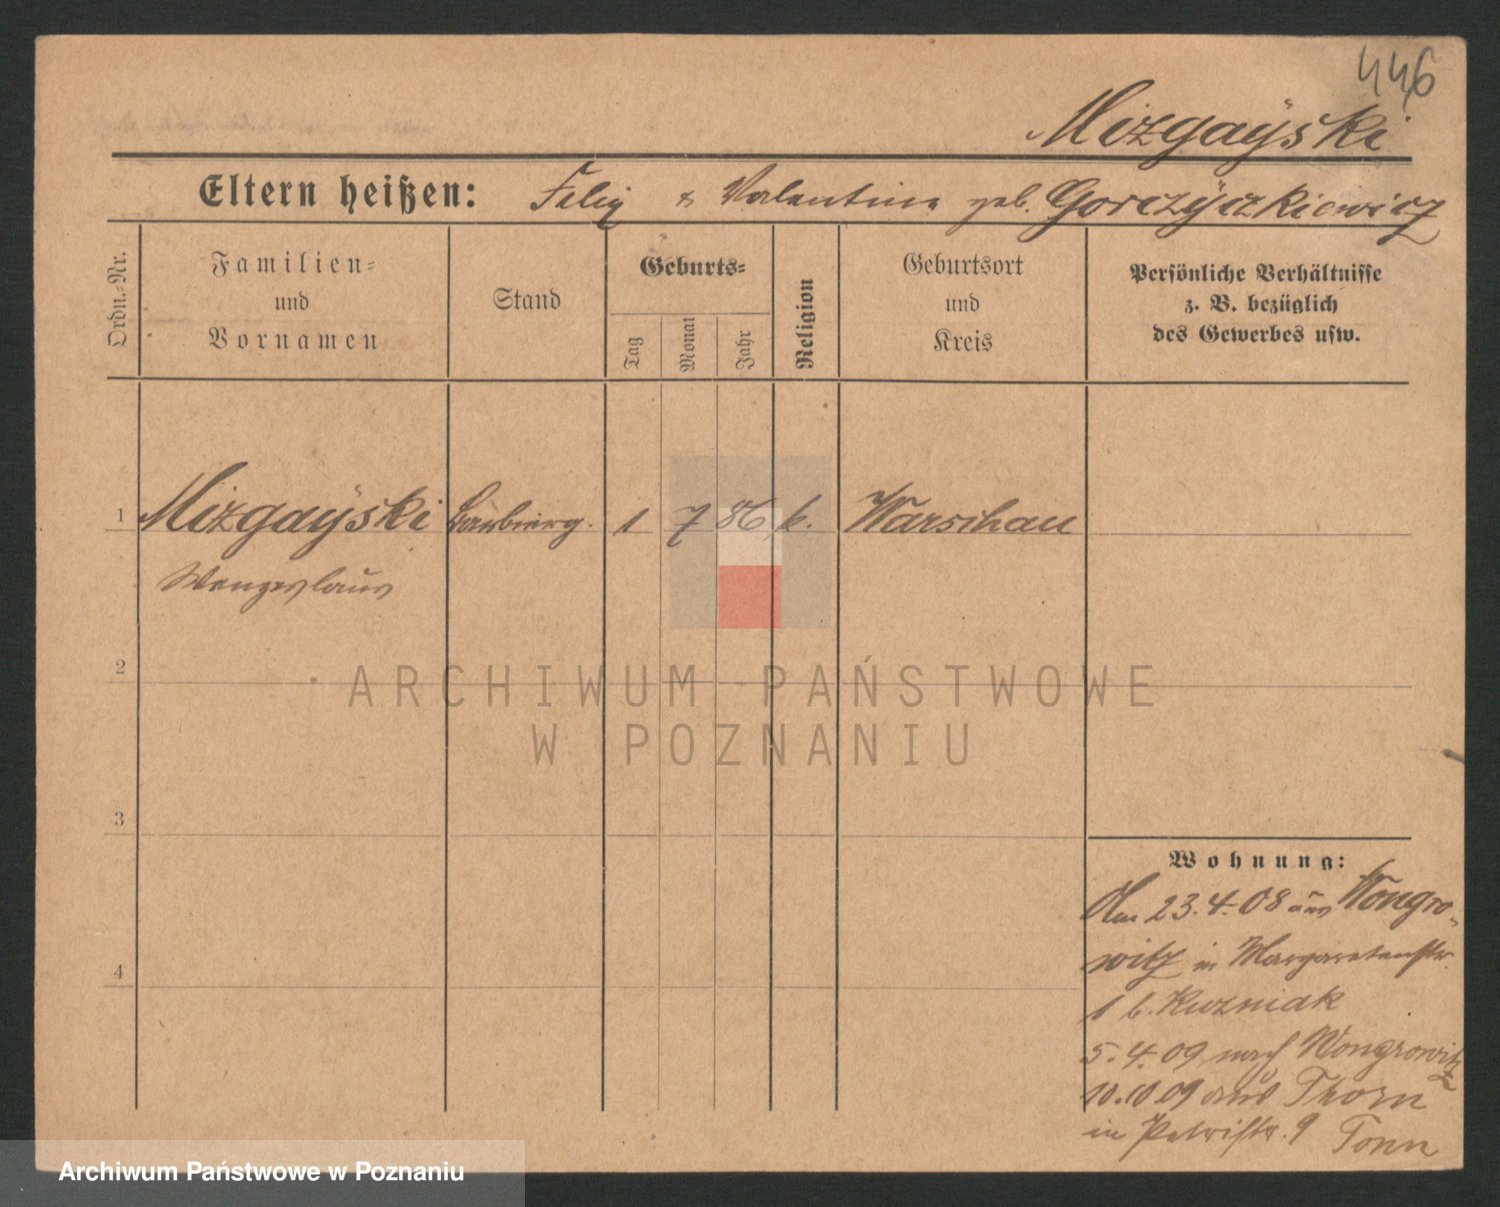 446
Mizgaÿski
Eltern heißen: Felix & Valentine geb. Gorczÿczkiewicz
Ordn.-Nr.
Familien-
und
Vornamen
Stand
Geburts-
Tag
Monat
Jahr
Religion
Geburtsort
und
Kreis
Persönliche Verhältnisse
z. B. bezüglich
des Gewerbes usw.
1 Mizgaÿski 1 7 86 k. Warschau
Wenzeslaus
2
ARCHIWUM PAŃSTWOWE
W POZNANIU
3
Wohnung:
Am 23.4.08 aus Wongro-
witz in Margaretenstr.
4
1 b. Kuzniak
5.4.09 nach Wongrowitz
10.10.09 aus Thorn
in Petristr. 9 Tonn
Archiwum Państwowe w Poznaniu